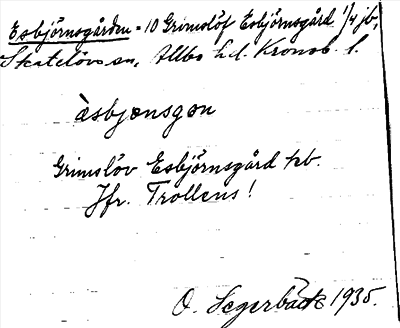 Esbjörnsgården = 10 Grimslöf Esbjörnsgård 1/4 jb,
Skatelövs sn, Allbo hd. Kronob. l.
àsbjønsgøn
Grimslöv Esbjörnsgård kb.
Jfr. Trollens!
O. Segerbäck 1935.